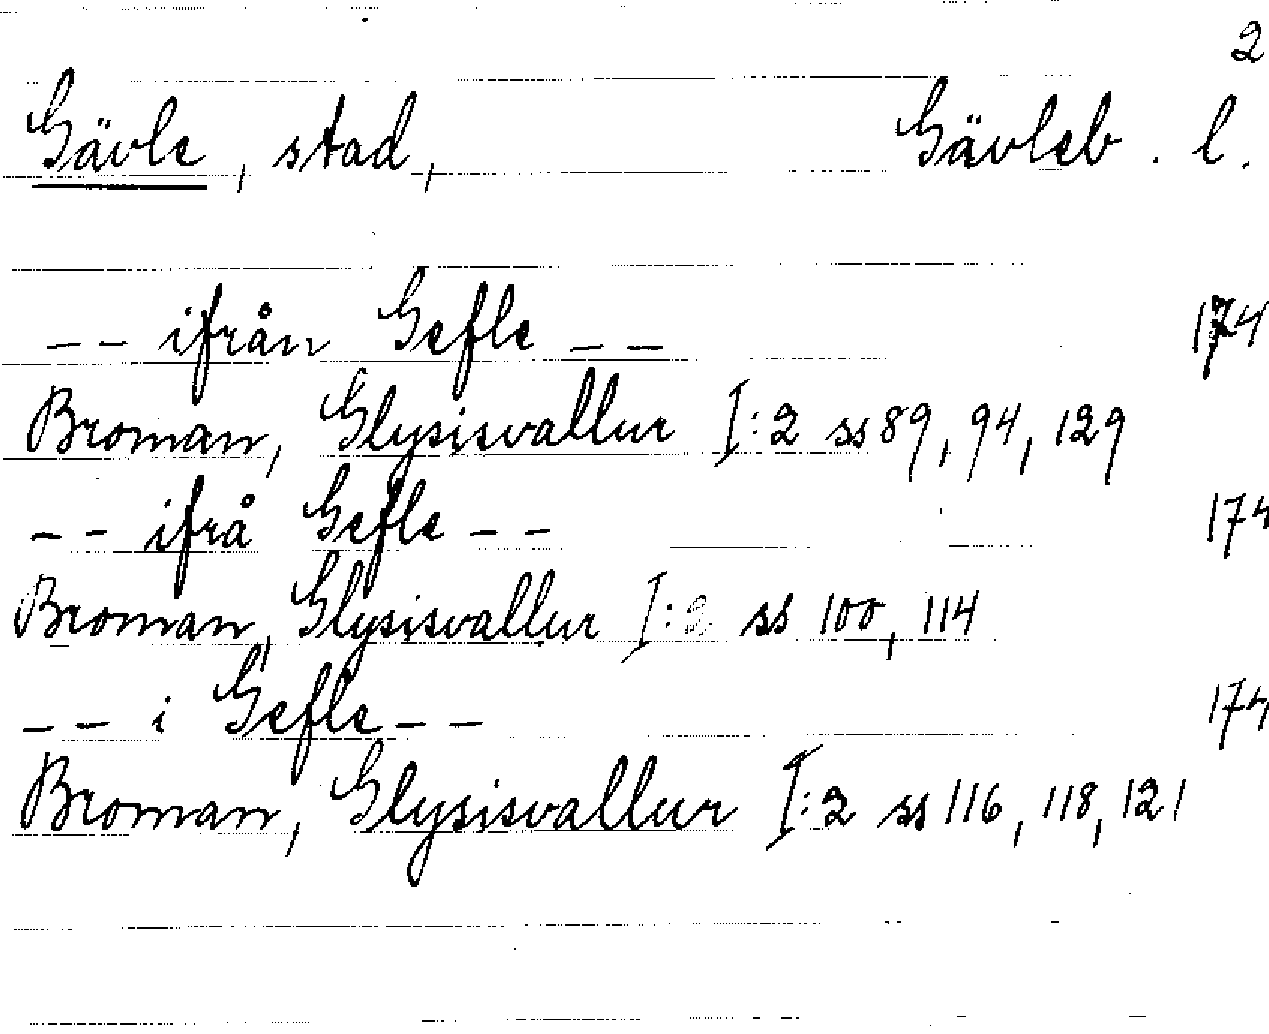 2
Gävle, stad, Gävleb. l.
-- ifrån Gefle -- 174
Broman, Glysisvallur I:2 ss 89, 94, 129
-- ifrå Gefle -- 174
Broman, Glysisvallur I:2 ss 100, 114
-- i Gefle -- 174
Broman, Glysisvallur I:2 ss 116, 118, 121